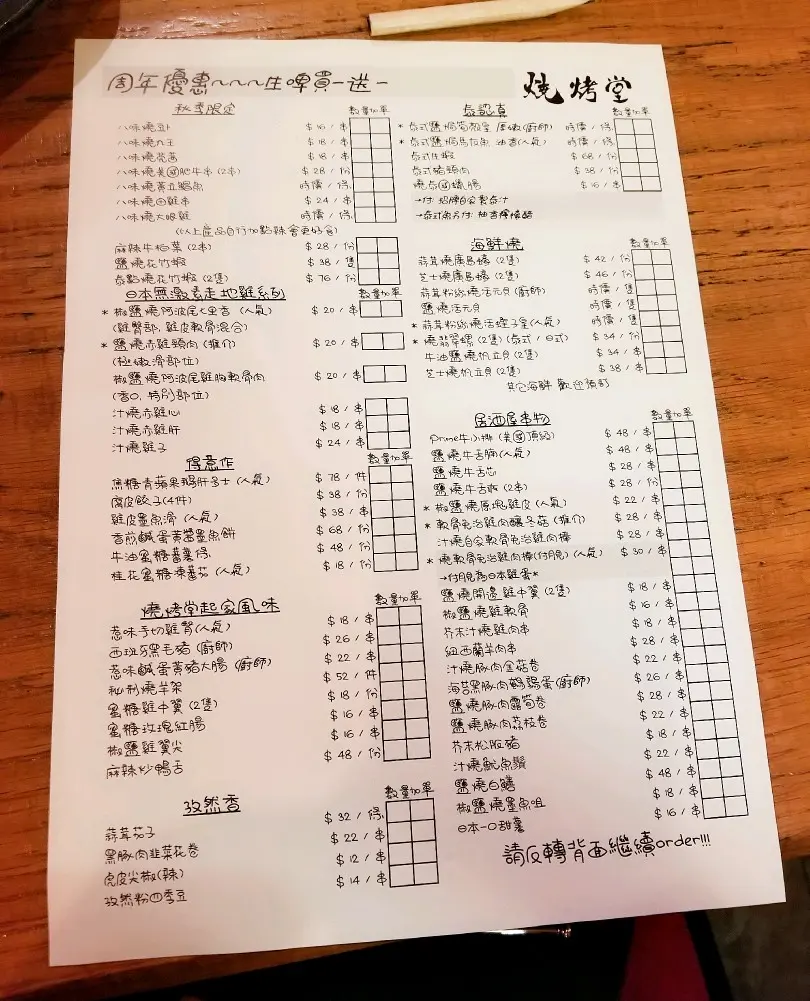 周年優惠~~~生啤買一送一
燒烤堂
秋季限定
數量加單
$16/串
$18/串
$18/串
八味燒美國肥牛串(2串) $28/份
時價/條
八味燒田雞串 $24/串
八味燒大眼雞 時價/條
(以上產品自行加點辣會更好食)
麻辣牛栢葉(2串) $28/份
鹽燒花竹蝦 $38/隻
泰點燒花竹蝦(2隻) $76/份
日本無激素走地雞系列
數量加單
*椒鹽燒阿波尾七里香(人氣) $20/串
(雞臀部, 雞皮軟骨混合)
*鹽燒赤雞頸肉(推介) $20/串
(極嫩滑部位)
椒鹽燒阿波尾雞胸軟骨肉 $20/串
(香口, 特別部位)
汁燒赤雞心 $18/串
汁燒赤雞肝 $18/串
汁燒雞子 $24/串
得意作
數量加單
焦糖青蘋果鵝肝多士(人氣) $78/件
窩皮餃子(4件) $38/份
雞皮墨魚滑(人氣) $38/串
香煎鹹蛋黃蟹墨魚餅 $68/份
牛油蜜糖蕃薯條 $48/份
桂花蜜糖凍蕃茄(人氣) $18/份
燒烤堂起家風味
數量加單
惹味手切雞腎(人氣) $18/串
西班牙黑毛豬(廚師) $26/串
惹味鹹蛋黃豬大腸(廚師) $22/串
秘制燒羊架 $52/件
蜜糖雞中翼(2隻) $18/份
蜜糖玫瑰紅腸 $16/串
椒鹽雞翼尖 $16/串
麻辣炒鴨舌 $48/份
孜然香
數量加單
蒜茸茄子 $32/條
黑豚肉韭菜花卷 $22/串
虎皮尖椒(辣) $12/串
孜然粉四季豆 $14/串
泰認真
數量加單
時價/條
時價/條
泰式生蝦 $68/份
泰式豬頸肉 $38/份
$16/串
海鮮燒
數量加單
蒜茸燒廣島蠔(2隻) $42/份
芝士燒廣島蠔(2隻) $46/份
蒜茸粉絲燒活元貝(廚師) 時價/隻
鹽燒活元貝 時價/隻
*蒜茸粉絲燒活蟶子皇(人氣) 時價/隻
*燒翡翠螺(2隻)(泰式/日式) $34/份
牛油鹽燒帆立貝(2隻) $34/串
芝士燒帆立貝(2隻) $38/串
其它海鮮 歡迎預訂
居酒屋串物
數量加單
Prime牛小排(美國頂級) $48/串
鹽燒牛舌腩(人氣) $48/串
鹽燒牛舌芯 $28/串
鹽燒牛舌(2串) $28/份
*椒鹽燒原塊雞皮(人氣) $22/串
*軟骨免治雞肉釀冬菇(推介) $28/串
汁燒自家軟骨免治雞肉棒 $28/串
*燒軟骨免治雞肉棒(付月見)(人氣) $30/串
→付月見為日本雞蛋*
鹽燒開邊雞中翼(2隻) $18/串
椒鹽燒雞軟骨 $16/串
芥末汁燒雞肉串 $18/串
紐西蘭羊肉串 $28/串
汁燒豚肉金菇卷 $22/串
海苔黑豚肉鵪鶉蛋(廚師) $26/串
鹽燒豚肉露筍卷 $28/串
鹽燒豚肉荔枝卷 $22/串
芥末松阪豬 $18/串
汁燒魷魚鬚 $22/串
鹽燒白鱔 $48/串
椒鹽燒墨魚咀 $18/串
日本一口甜薯 $16/串
請反轉背面繼續order!!!